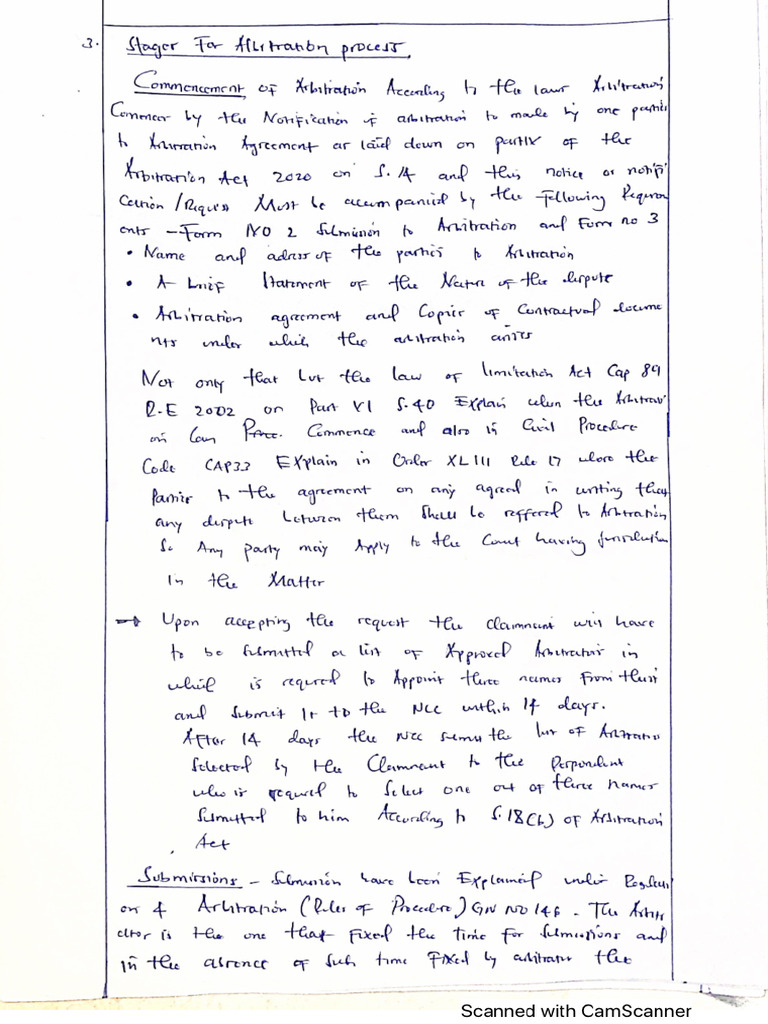 3. Stages For Arbitration process.
Commencement of Arbitration According to the law Arbitration
Commences by the Notification of arbitration to made by one parties
to Arbitration Agreement as laid down on part IV of the
Arbitration Act 2020 on S.14 and this notice or notifi
cation /Request Must be accompanied by the following Requirem
ents - Form NO 2 Submission to Arbitration and Form no 3
• Name and adress of the parties to Arbitration
• A brief Statement of the Nature of the dispute
• Arbitration agreement and Copies of Contractual docume
nts under which the arbitration arises
Not only that but the law of limitation Act Cap 89
R.E 2002 on Part VI S.40 Explain when the Arbitrati
on Can Commence and also in Civil Procedure
Code CAP33 Explain in Order XLIII Rule 17 where the
Parties to the agreement on any agreed in writing that
any dispute between them shall be reffered to Arbitration
So Any party may Apply to the Court having jurisdiction
in the Matter
→ Upon accepting the request the claimnant will have
to be submitted a list of Approved Arbitrators in
which is required to Appoint three names from them
and submit it to the NCC within 14 days.
After 14 days the NCC the list of Arbitrators
selected by the Claimnant to the Respondent
who is required to select one out of three names
submitted to him According to S.18(b) of Arbitration
Act
Submissions - Submission have been Explained under Regulati
on 4 Arbitration (Rules of Procedure) GN NO 146. The Arbitr
ator is the one that fixed the time for submissions and
in the absence of such time fixed by arbitrator the
Scanned with CamScanner